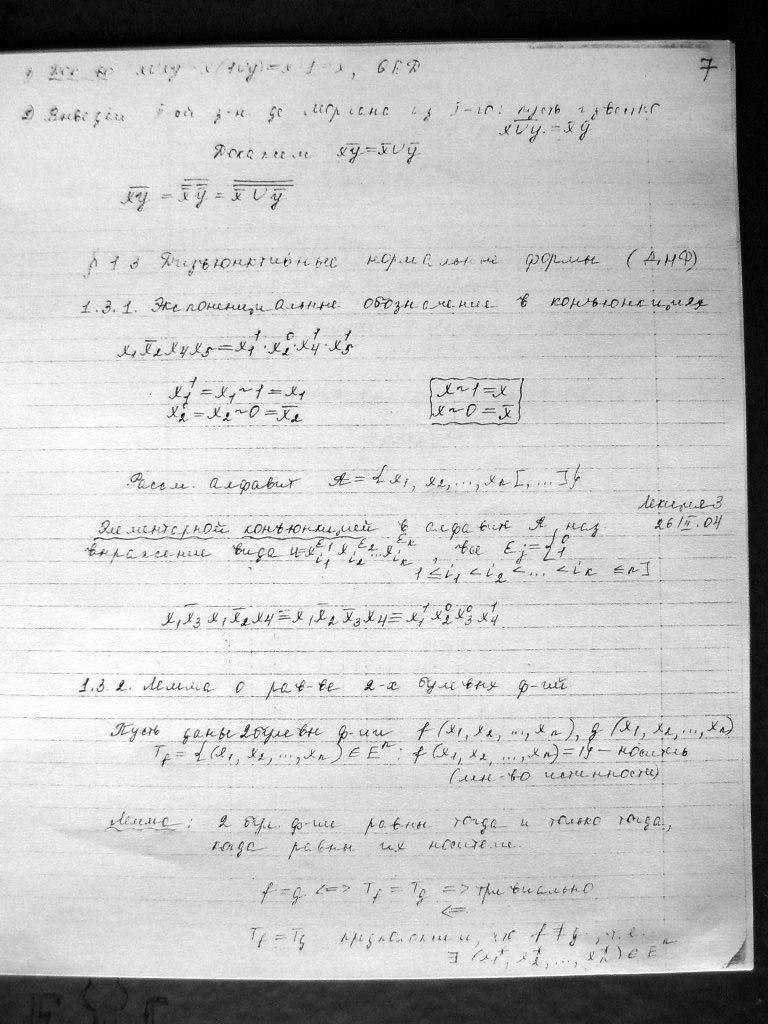 7
x∨xy = x(1∨y)=x·1=x,
2) Выведем й з-н де Моргана из I-го: пусть известно
x̅∨̅y̅ = x̄ȳ
Докажем x̅y̅ = x̄∨ȳ
x̅y̅ = x̿ y̿ = x̄ ∨ ȳ
§ 1.3 Дизъюнктивные нормальные формы (ДНФ)
1.3.1. Экспоненциальные обозначение в конъюнкциях
x₁x̄₂x₄x₅ = x₁¹·x₂⁰·x₄¹·x₅¹
x₁¹ = x₁~1 = x₁
x~1 = x
x₂⁰ = x₂~0 = x̄₂
x~0 = x̄
Рассм. алфавит A = {x₁, x₂, ..., xₙ[, ...]}
Лекция 3
26 II. 04
Элементарной конъюнкцией в алфавите A наз.
выражение вида U = x_{i₁}^{ε₁} x_{i₂}^{ε₂} ... x_{iₖ}^{εₖ}, где εⱼ = {0 1
1 ≤ i₁ < i₂ < ... < iₖ ≤ n]
x₁x̄₃x₁x̄₂x₄ ≡ x₁x̄₂x̄₃x₄ ≡ x₁¹x₂⁰x₃⁰x₄¹
1.3.2. Лемма о рав-ве 2-х булевых ф-ий
Пусть даны 2 булевы ф-ии f(x₁, x₂, ..., xₙ), g(x₁, x₂, ..., xₙ)
T_f = {(x₁, x₂, ..., xₙ) ∈ Eⁿ : f(x₁, x₂, ..., xₙ) = 1} – носитель
(мн-во истинности)
Лемма: 2 бул. ф-ии равны тогда и только тогда,
когда равны их носители.
f = g <=> T_f = T_g => тривиально
<=
T_f = T_g предположим, что f ≠ g, т.е.
∃ (x₁*, x₂*, ..., xₙ*) ∈ Eⁿ